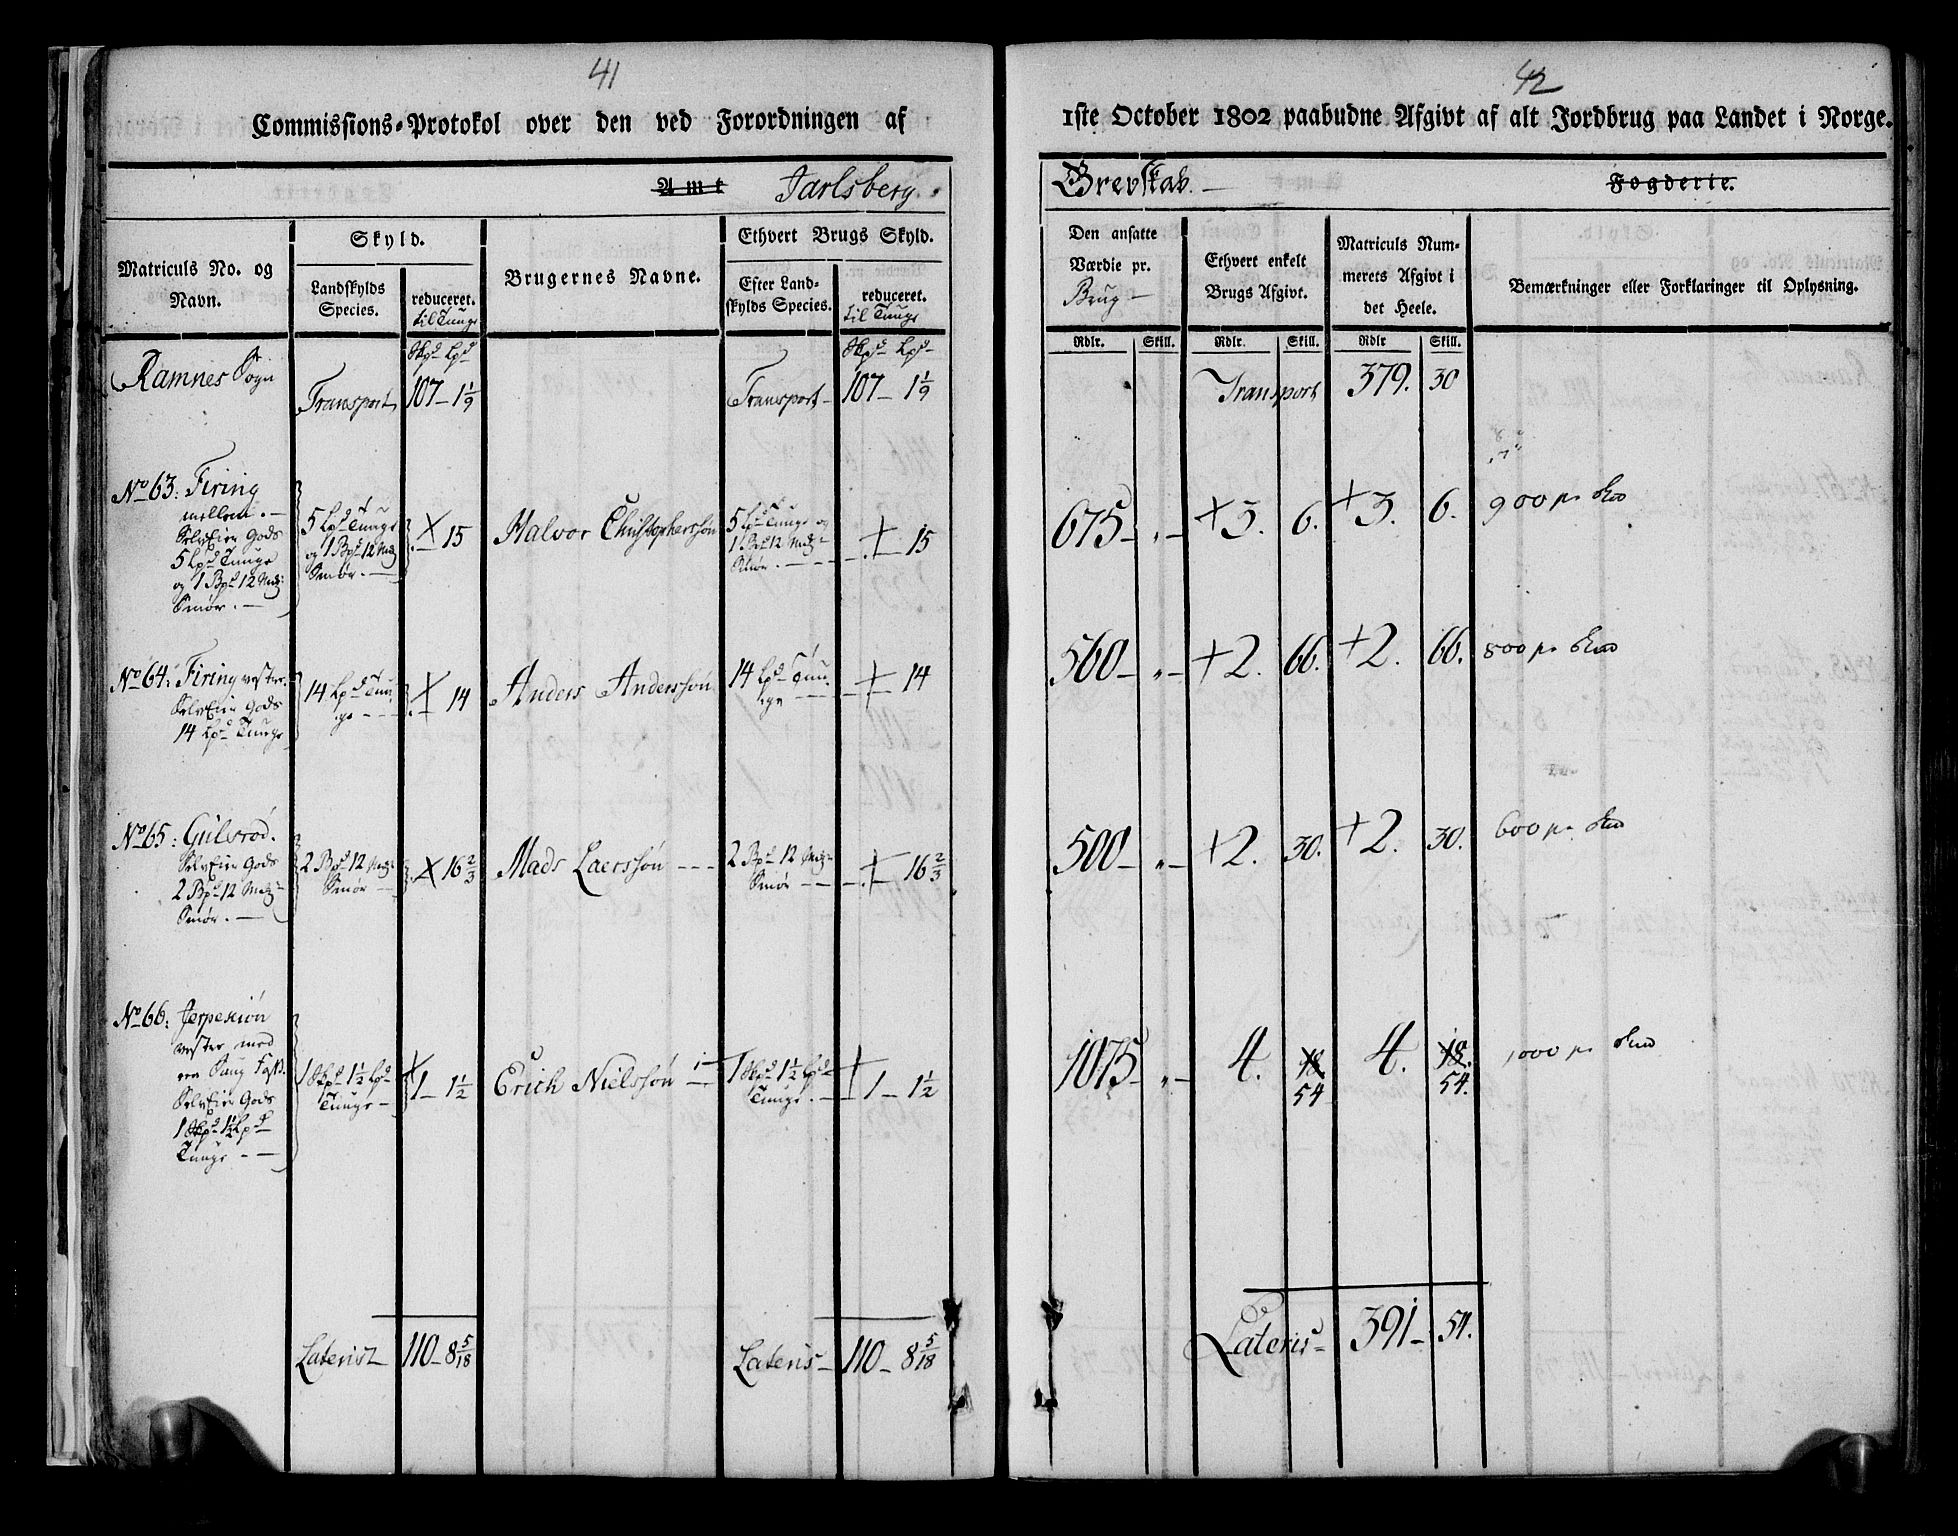 41
Commissions-Protokol over den ved Forordningen af
Amt Jarlsberg.
Matriculs No. og Navn.
Skyld.
Landskylds Species.
reduceret. til Tunge
Brugernes Navne.
Ethvert Brugs Skyld.
Efter Landskylds Species.
reduceret. til Tunge
Ramnes Sogn
Transport
Skpd Lpd
107 - 1 1/9
Transport -
Skpd Lpd -
107 - 1 1/9
No 63: Firing
mellem. -
SelvEier Gods
5 Lpd Tunge
og 1 Bpd 12 Mrk:
Smør. -
5 Lpd Tunge
og 1 Bpd 12 Mrk:
Smør. -
15
Halvor Christophersøn
5 Lpd Tunge og
1 Bpd 12 Mrk:
Smør. -
15
No 64: Firing vester.
SelvEier Gods
14 Lpd Tunge
14 Lpd Tun-
ge - -
14
Anders Andersøn
14 Lpd Tun-
ge - -
14
No 65: Gulsrød.
SelvEier Gods
2 Bpd 12 Mrk:
Smør. -
2 Bpd 12 Mrk:
Smør -
16 2/3
Mads Laersøn - - -
2 Bpd 12 Mrk:
Smør - -
16 2/3
No 66: Jerpesiøn
vester med
SelvEier Gods
1 Skpd 1 1/2 Lpd
Tunge - -
1 Skpd 1 1/2 Lpd
Tunge -
1 - 1 1/2
Erich Nielssøn
1 Skpd 1 1/2 Lpd
Tunge. -
1 - 1 1/2
Lateris
110 - 8 5/18
Lateris -
110 - 8 5/18
42
1ste October 1802 paabudne Afgivt af alt Jordbrug paa Landet i Norge.
Grevskab. -
Fogderie.
Den ansatte Værdie pr. Brug -
Ethvert enkelt Brugs Afgivt.
Matriculs Nummerets Afgivt i det Heele.
Bemærkninger eller Forklaringer til Oplysning.
Rdlr. Skill. Rdlr. Skill. Rdlr Skill.
Transport 379. 30
675 - „ - + 3. 6. + 3. 6. 900
560 - „ - + 2. 66. + 2. 66. 800
500 - „ - + 2. 30. + 2. 30. 600
1075 - „ - 4. 18 4. 18
54 54.
1000
Lateris - 391 - 54.